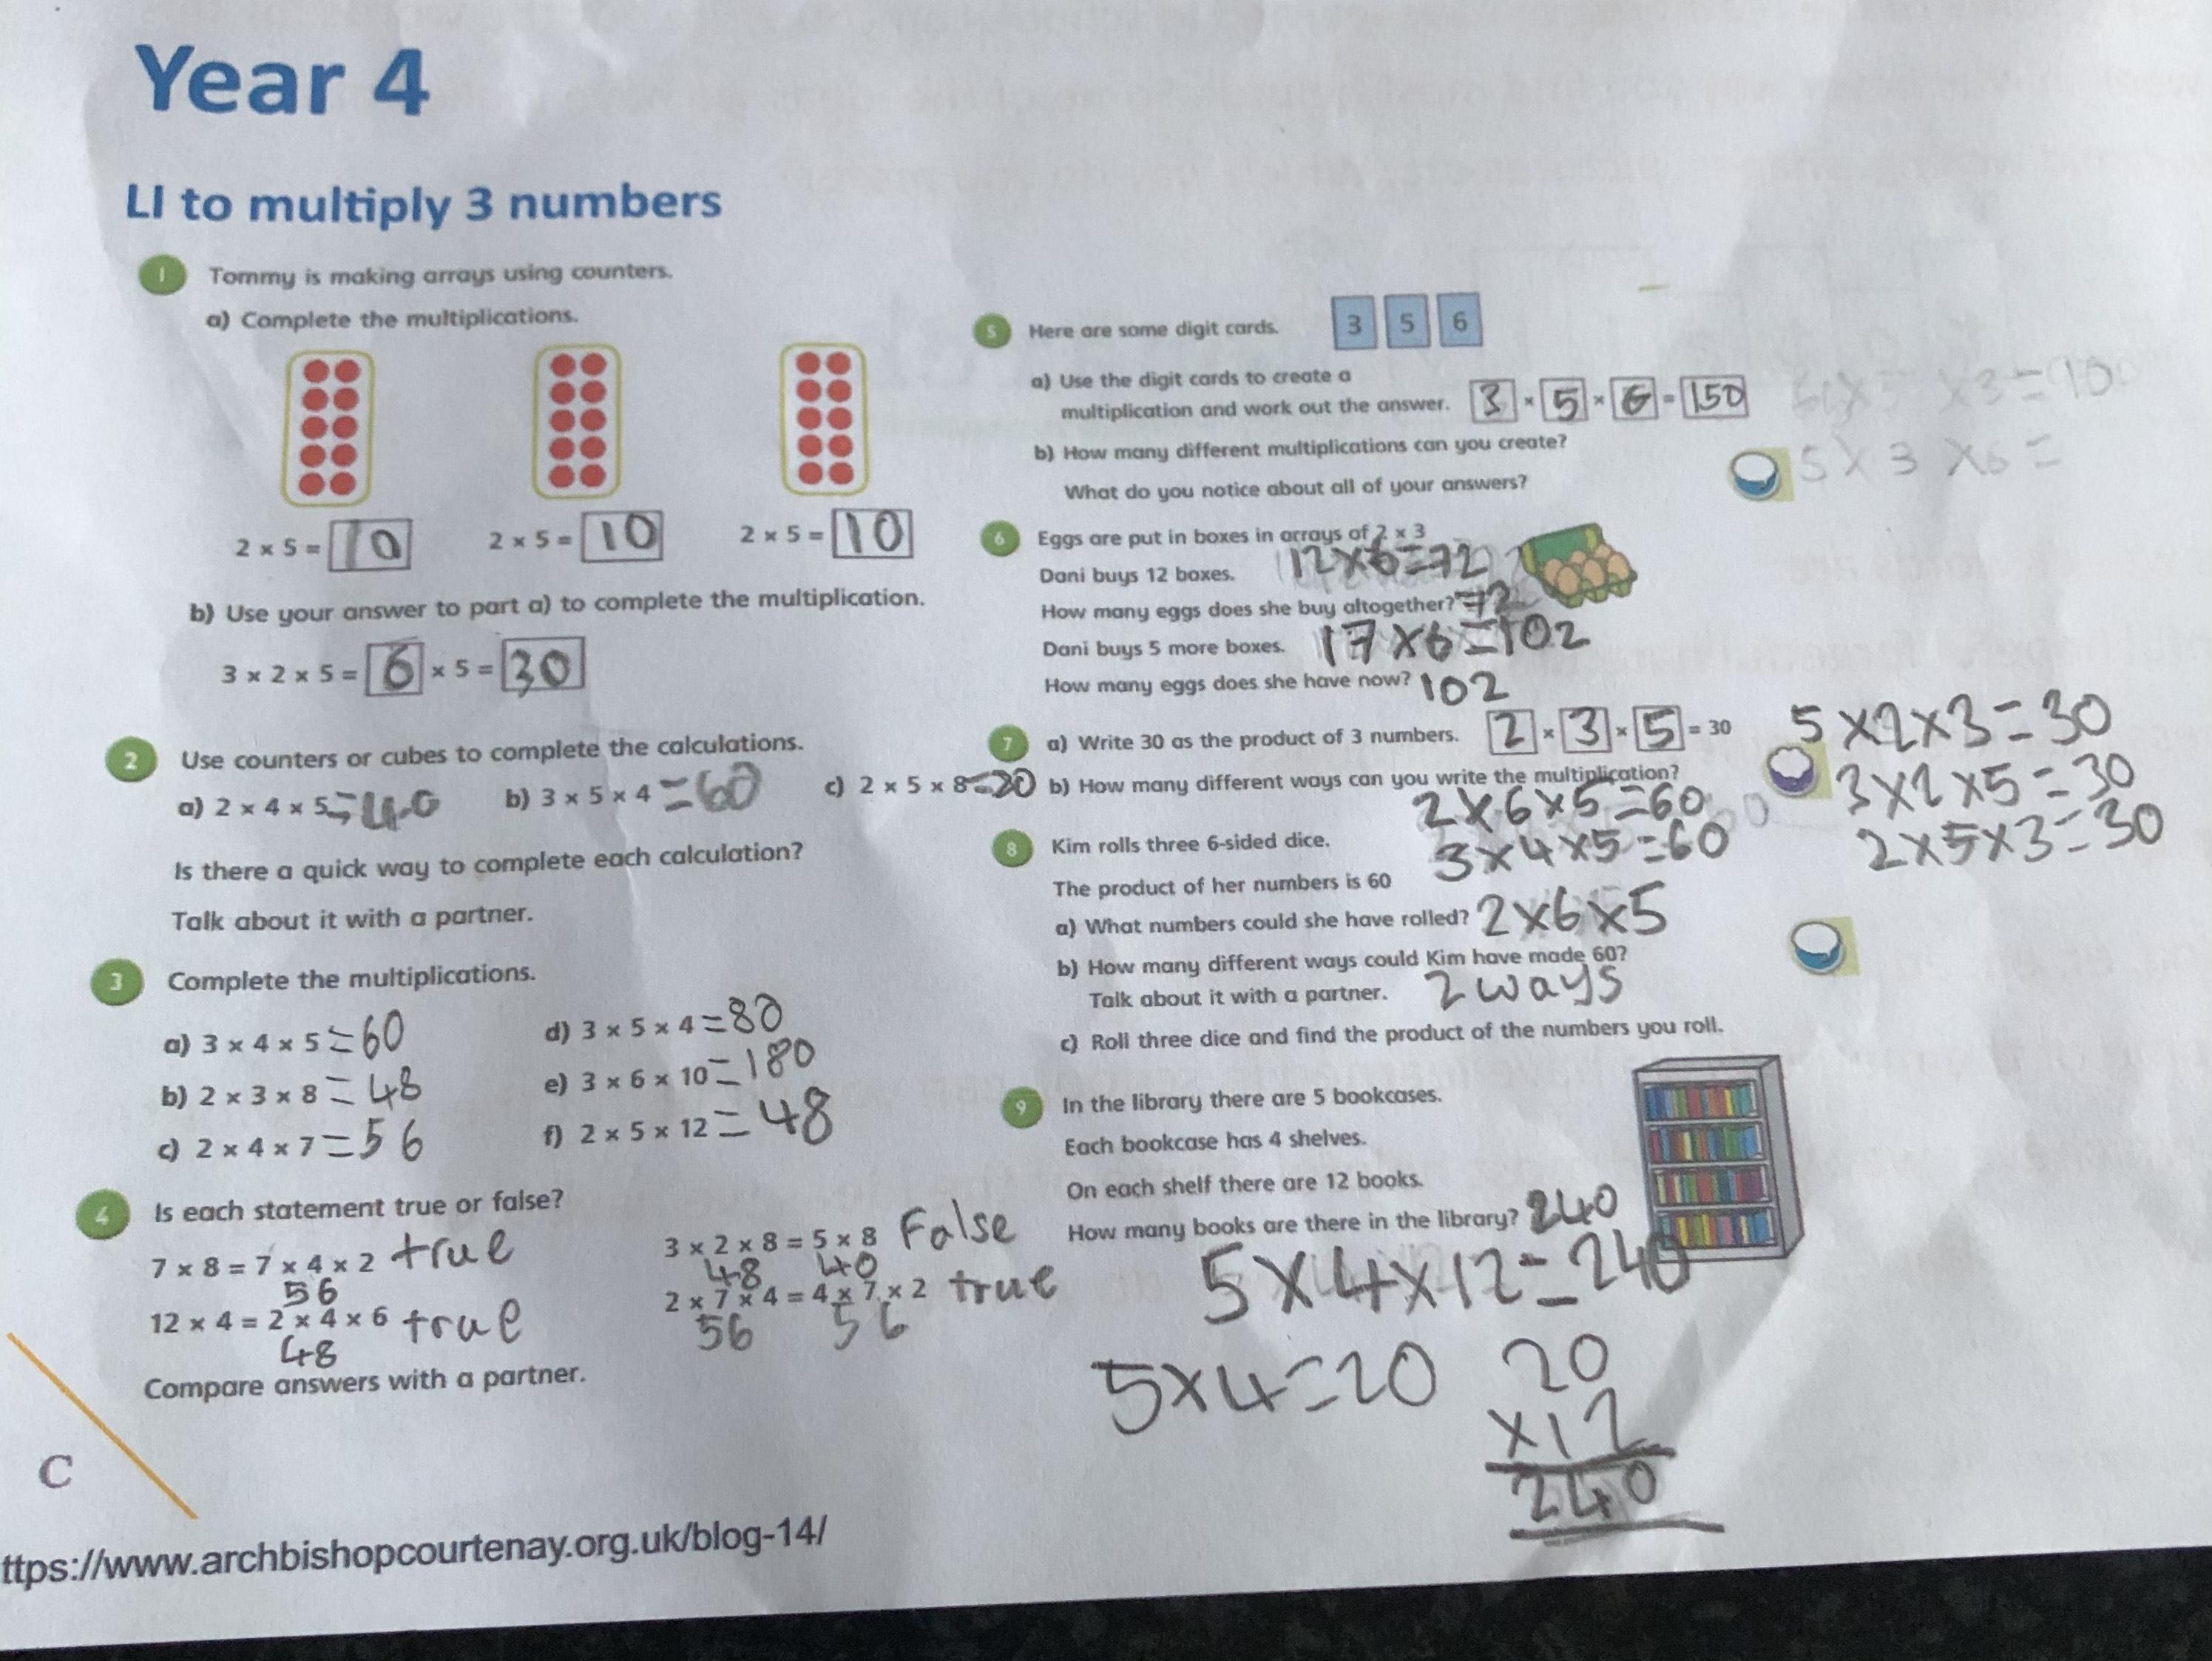 Year 4
LI to multiply 3 numbers
1 Tommy is making arrays using counters.
a) Complete the multiplications.
2 × 5 = 10 2 × 5 = 10 2 × 5 = 10
b) Use your answer to part a) to complete the multiplication.
3 × 2 × 5 = 6 × 5 = 30
2 Use counters or cubes to complete the calculations.
a) 2 × 4 × 5 = 40 b) 3 × 5 × 4 = 60 c) 2 × 5 × 8 = 20
Is there a quick way to complete each calculation?
Talk about it with a partner.
3 Complete the multiplications.
a) 3 × 4 × 5 = 60 d) 3 × 5 × 4 = 80
b) 2 × 3 × 8 = 48 e) 3 × 6 × 10 = 180
c) 2 × 4 × 7 = 56 f) 2 × 5 × 12 = 48
4 Is each statement true or false?
7 × 8 = 7 × 4 × 2 true 3 × 2 × 8 = 5 × 8 False
56 48 40
12 × 4 = 2 × 4 × 6 true 2 × 7 × 4 = 4 × 7 × 2 true
48 56 56
Compare answers with a partner.
C
ttps://www.archbishopcourtenay.org.uk/blog-14/
5 Here are some digit cards. 3 5 6
a) Use the digit cards to create a
multiplication and work out the answer. 3 × 5 × 6 = 150
b) How many different multiplications can you create?
5 × 3 × 6 =
What do you notice about all of your answers?
6 Eggs are put in boxes in arrays of 2 × 3
Dani buys 12 boxes. 12×6=72
How many eggs does she buy altogether? =72
Dani buys 5 more boxes. 17×6=102
How many eggs does she have now? 102
7 a) Write 30 as the product of 3 numbers. 2 × 3 × 5 = 30 5×2×3=30
b) How many different ways can you write the multiplication? 3×2×5=30
2×5×3=30
2×6×5=60
8 Kim rolls three 6-sided dice. 3×4×5=60
The product of her numbers is 60
a) What numbers could she have rolled? 2×6×5
b) How many different ways could Kim have made 60?
Talk about it with a partner. 2 ways
c) Roll three dice and find the product of the numbers you roll.
9 In the library there are 5 bookcases.
Each bookcase has 4 shelves.
On each shelf there are 12 books.
How many books are there in the library? 240
5×4×12=240
5×4=20 20
×12
240